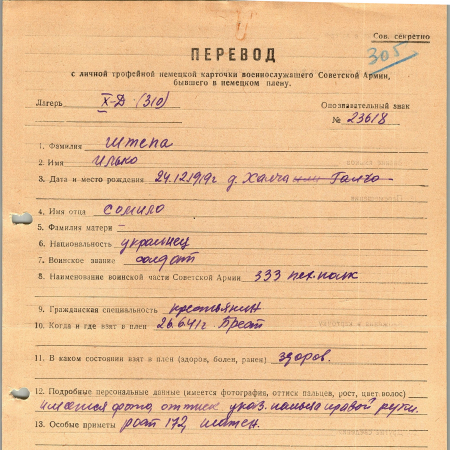 Сов. секретно
305
ПЕРЕВОД
с личной трофейной немецкой карточки военнослужащего Советской Армии,
бывшего в немецком плену.
Лагерь X-Д (310)
Опознавательный знак
№ 23618
1. Фамилия Штепа
2. Имя Илько
3. Дата и место рождения 24.12.1919г д. Халча или Галчо
4. Имя отца Сомило
5. Фамилия матери –
6. Национальность украинец
7. Воинское звание солдат
8. Наименование воинской части Советской Армии 333 пех. полк
9. Гражданская специальность крестьянин
10. Когда и где взят в плен 26.6.41г. Брест
11. В каком состоянии взят в плен (здоров, болен, ранен) здоров.
12. Подробные персональные данные (имеется фотография, оттиск пальцев, рост, цвет волос)
имеется фото, оттиск указ. пальца правой руки.
13. Особые приметы рост 172, шатен.